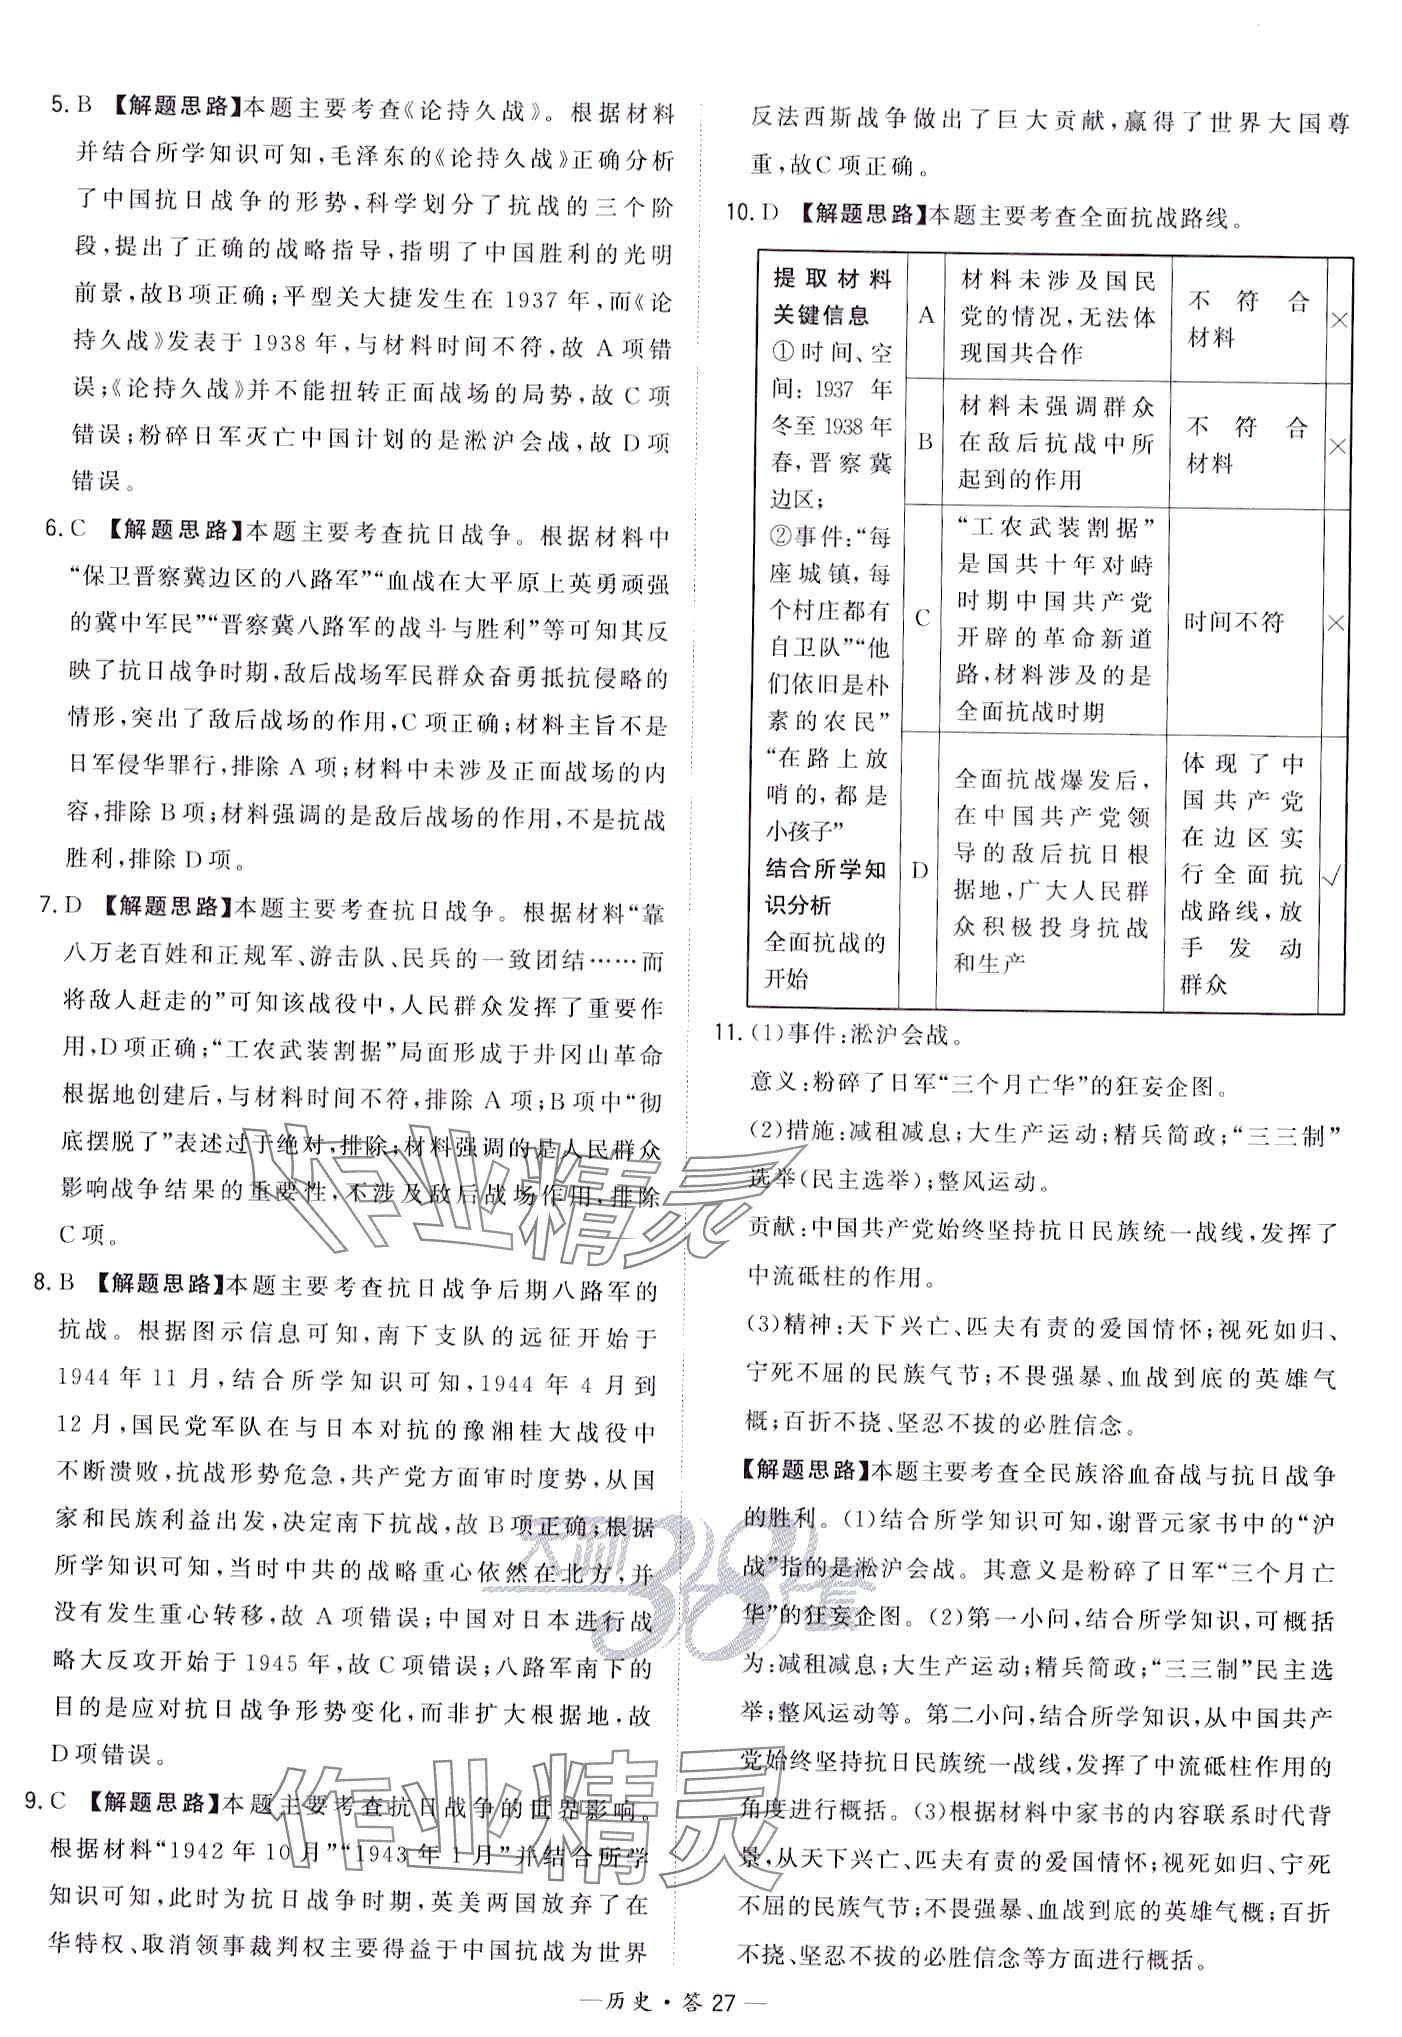 5. B 【解题思路】本题主要考查《论持久战》。根据材料
并结合所学知识可知，毛泽东的《论持久战》正确分析
了中国抗日战争的形势，科学划分了抗战的三个阶
段，提出了正确的战略指导，指明了中国胜利的光明
前景，故B项正确；平型关大捷发生在 1937 年，而《论
持久战》发表于 1938 年，与材料时间不符，故 A 项错
误；《论持久战》并不能扭转正面战场的局势，故 C 项
错误；粉碎日军灭亡中国计划的是淞沪会战，故 D 项
错误。
6. C 【解题思路】本题主要考查抗日战争。根据材料中
“保卫晋察冀边区的八路军”“血战在大平原上英勇顽强
的冀中军民”“晋察冀八路军的战斗与胜利”等可知其反
映了抗日战争时期，敌后战场军民群众奋勇抵抗侵略的
情形，突出了敌后战场的作用，C 项正确；材料主旨不是
日军侵华罪行，排除 A 项；材料中未涉及正面战场的内
容，排除 B 项；材料强调的是敌后战场的作用，不是抗战
胜利，排除 D 项。
7. D 【解题思路】本题主要考查抗日战争。根据材料“靠
八万老百姓和正规军、游击队、民兵的一致团结……而
将敌人赶走的”可知该战役中，人民群众发挥了重要作
用，D 项正确；“工农武装割据”局面形成于井冈山革命
根据地创建后，与材料时间不符，排除 A 项；B 项中“彻
底摆脱了”表述过于绝对，排除；材料强调的是人民群众
影响战争结果的重要性，不涉及敌后战场作用，排除
C 项。
8. B 【解题思路】本题主要考查抗日战争后期八路军的
抗战。根据图示信息可知，南下支队的远征开始于
1944 年 11 月，结合所学知识可知，1944 年 4 月到
12 月，国民党军队在与日本对抗的豫湘桂大战役中
不断溃败，抗战形势危急，共产党方面审时度势，从国
家和民族利益出发，决定南下抗战，故 B 项正确；根据
所学知识可知，当时中共的战略重心依然在北方，并
没有发生重心转移，故 A 项错误；中国对日本进行战
略大反攻开始于 1945 年，故 C 项错误；八路军南下的
目的是应对抗日战争形势变化，而非扩大根据地，故
D 项错误。
9. C 【解题思路】本题主要考查抗日战争的世界影响。
根据材料“1942 年 10 月”“1943 年 1 月”并结合所学
知识可知，此时为抗日战争时期，英美两国放弃了在
华特权、取消领事裁判权主要得益于中国抗战为世界
反法西斯战争做出了巨大贡献，赢得了世界大国尊
重，故 C 项正确。
10. D 【解题思路】本题主要考查全面抗战路线。
提取材料
关键信息
①时间、空
间：1937 年
冬至 1938 年
春，晋察冀
边区；
②事件：“每
座城镇，每
个村庄都有
自卫队”“他
们依旧是朴
素的农民”
“在路上放
哨的，都是
小孩子”
结合所学知
识分析
全面抗战的
开始
A
材料未涉及国民
党的情况，无法体
现国共合作
不符合
材料
×
B
材料未强调群众
在敌后抗战中所
起到的作用
不符合
材料
×
C
“工农武装割据”
是国共十年对峙
时期中国共产党
开辟的革命新道
路，材料涉及的是
全面抗战时期
时间不符
×
D
全面抗战爆发后，
在中国共产党领
导的敌后抗日根
据地，广大人民群
众积极投身抗战
和生产
体现了中
国共产党
在边区实
行全面抗
战路线，放
手发动
群众
√
11. (1)事件：淞沪会战。
意义：粉碎了日军“三个月亡华”的狂妄企图。
(2)措施：减租减息；大生产运动；精兵简政；“三三制”
选举（民主选举）；整风运动。
贡献：中国共产党始终坚持抗日民族统一战线，发挥了
中流砥柱的作用。
(3)精神：天下兴亡、匹夫有责的爱国情怀；视死如归、
宁死不屈的民族气节；不畏强暴、血战到底的英雄气
概；百折不挠、坚忍不拔的必胜信念。
【解题思路】本题主要考查全民族浴血奋战与抗日战争
的胜利。(1)结合所学知识可知，谢晋元家书中的“沪
战”指的是淞沪会战。其意义是粉碎了日军“三个月亡
华”的狂妄企图。(2)第一小问，结合所学知识，可概括
为：减租减息；大生产运动；精兵简政；“三三制”民主选
举；整风运动等。第二小问，结合所学知识，从中国共产
党始终坚持抗日民族统一战线，发挥了中流砥柱作用的
角度进行概括。(3)根据材料中家书的内容联系时代背
景，从天下兴亡、匹夫有责的爱国情怀；视死如归、宁死
不屈的民族气节；不畏强暴、血战到底的英雄气概；百折
不挠、坚忍不拔的必胜信念等方面进行概括。
作业精灵
天利38套
作业精灵
—历史·答 27—